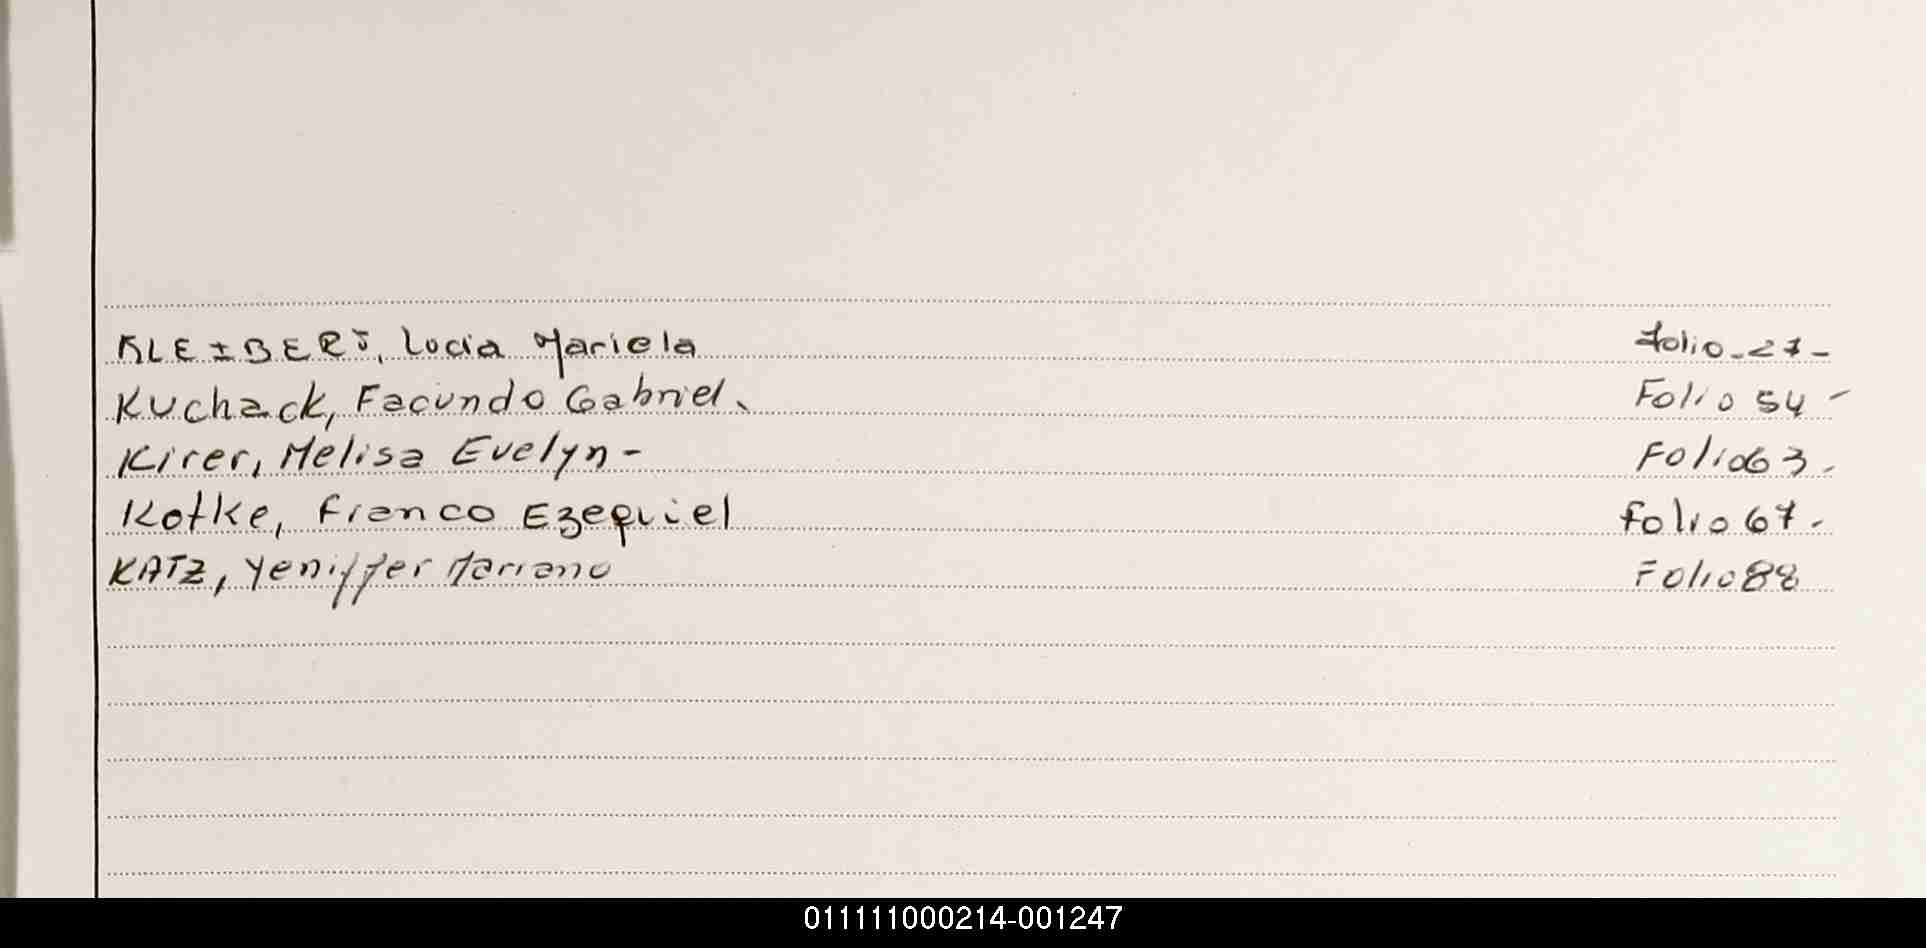 KLEIBERT, Lucia Mariela folio-27-
Kuchack, Facundo Gabriel. Folio 54-
Kirer, Melisa Evelyn- Folio 63.
Kotke, Franco Ezequiel folio 67.
KATZ, Yeniffer Mariano Folio 88
011111000214-001247